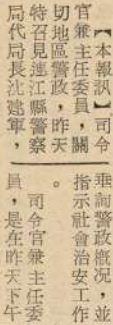 【本報訊】司令
官兼主任委員，關
切地區警政，昨天
特召見連江縣警察
局代局長沈建軍，
垂詢警政概況，並
指示社會治安工作
。
司令官兼主任委
員，是在昨天下午